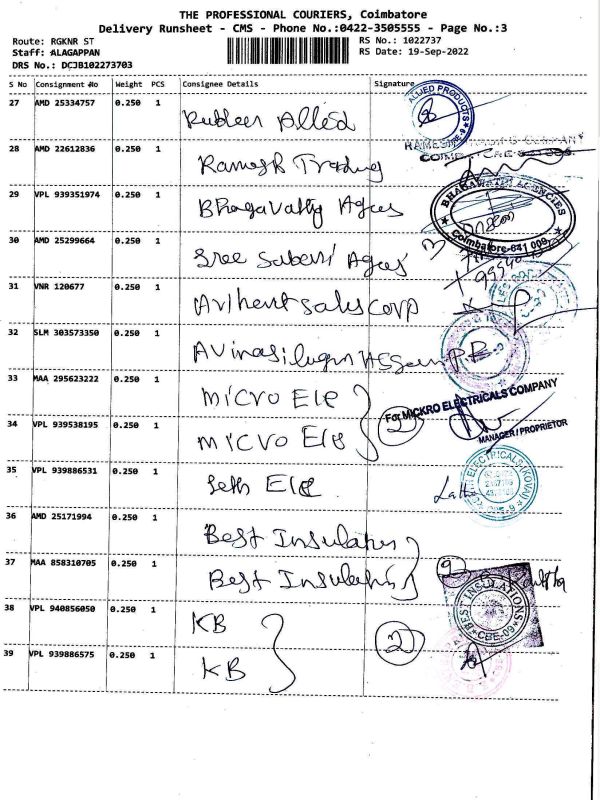 THE PROFESSIONAL COURIERS, Coimbatore
Delivery Runsheet - CMS - Phone No.:0422-3505555 - Page No.:3
Route: RGKNR ST
RS No.: 1022737
Staff: ALAGAPPAN
RS Date: 19-Sep-2022
DRS No.: DCJB102273703
S No Consignment No Weight PCS Consignee Details Signature
27 AMD 25334757 0.250 1 Rubber Allied
ALLIED PRODUCTS
28 AMD 22612836 0.250 1 Ramesh Trading
29 VPL 939351974 0.250 1 Bhagavathy Agces
BHAGAWATHI AGENCIES
Coimbatore-641 009
30 AMD 25299664 0.250 1 Sree Saberi Agces
31 VNR 120677 0.250 1 Arihent sales corp
32 SLM 303573350 0.250 1
33 MAA 295623222 0.250 1 Micro Ele
For MICKRO ELECTRICALS COMPANY
34 VPL 939538195 0.250 1 Micro Ele
2
MANAGER / PROPRIETOR
35 VPL 939886531 0.250 1 Seth Ele
ELECTRICALS (KOVAI)
36 AMD 25171994 0.250 1 Best Insulation
37 MAA 858310705 0.250 1 Best Insulation
2
BEST INSULATIONS
CBE-09
38 VPL 940856050 0.250 1 KB
2
39 VPL 939886575 0.250 1 KB